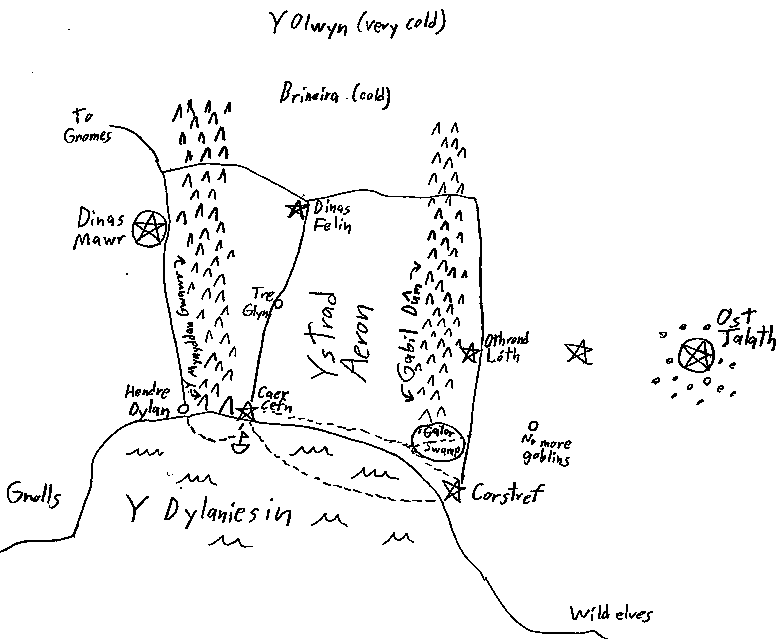 Y Olwyn (very cold)
Brineira (cold)
To
Gnomes
Dinas
Mawr
Dinas
Felin
Tre
Glyn
Ystrad
Aeron
Gabil Dûm
Othrond
Loth
Ost
Jalath
Hendre
Dylan
Caer
Cefn
Gator
Swamp
No more
goblins
Gnolls
Y Dylaniesin
Corstref
Wild elves